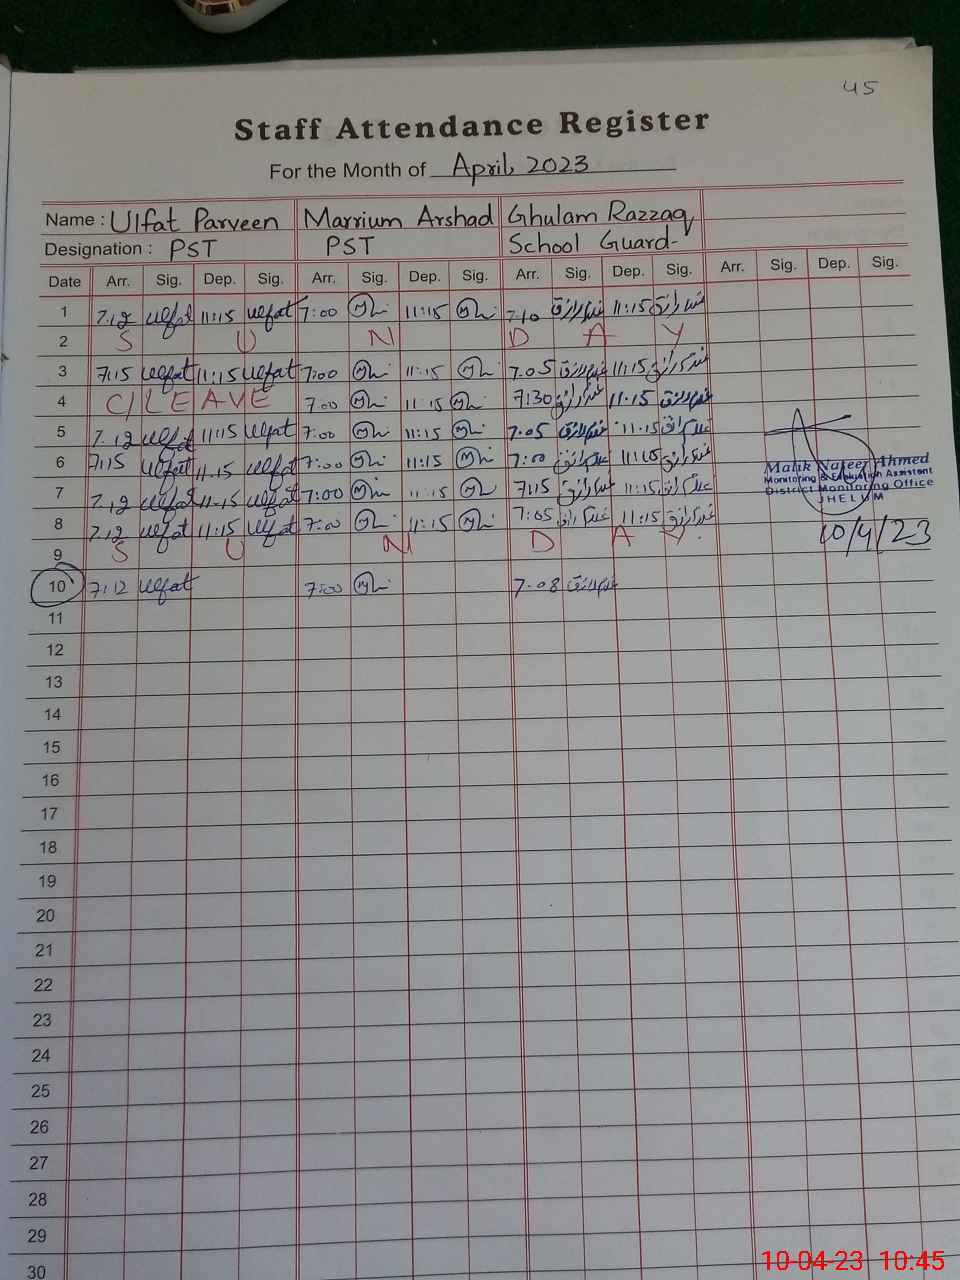 45
Staff Attendance Register
For the Month of April, 2023
Name : Ulfat Parveen Marrium Arshad Ghulam Razzaq
Designation : PST PST School Guard
Date Arr. Sig. Dep. Sig. Arr. Sig. Dep. Sig. Arr. Sig. Dep. Sig. Arr. Sig. Dep. Sig.
1 7.12 ulfat 11:15 ulfat 7:00 11:15 7.10 غلام رازق 11:15 غلام رازق
2 S U N D A Y
3 7:15 ulfat 11:15 ulfat 7:00 11:15 7.05 غلام رازق 11:15 غلام رازق
4 C/LEAVE 7:00 11:15 7:30 غلام رازق 11.15 غلام رازق
5 7.12 ulfat 11:15 ulfat 7:00 11:15 7.05 غلام رازق 11.15 غلام رازق
6 7:15 ulfat 11.15 ulfat 7:00 11:15 7:00 غلام رازق غلام رازق
7 7.12 ulfat 11.15 ulfat 7:00 11:15 7:15 غلام رازق 11:15 غلام رازق
8 7.12 ulfat 11:15 ulfat 7:00 11:15 7:05 غلام رازق 11:15 غلام رازق
9 S U N D A Y
10 7:12 ulfat 7:00 7.08 غلام رازق
11
12
13
14
15
16
17
18
19
20
21
22
23
24
25
26
27
28
29
30
Malik Nafeer Ahmed
Monitoring & Evaluation Assistant
District Monitoring Office
JHELUM
10/4/23
10-04-23 10:45